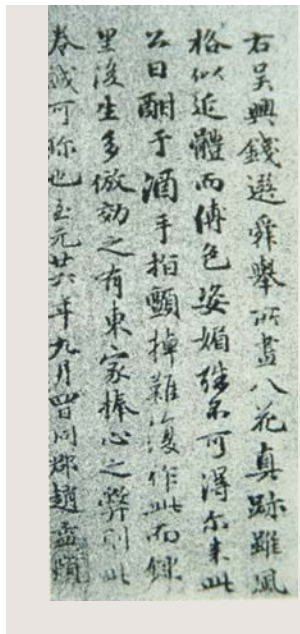 右吴興錢選舜舉所畫八花真跡雖風
格似近體而傅色姿媚殊不可得尓来此
公日酣于酒手指顫掉難復作此而鄉
里後生多倣効之有東家捧心之弊則此
卷誠可珎也至元廿六年九月四日同郡趙孟頫